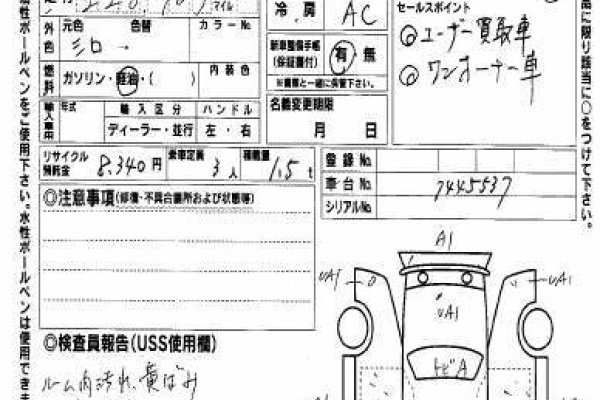 冷房 AC
セールスポイント
マイル
元色 色替 カラーNo.
外色 シロ →
◎ユーザー買取車
新車整備手帳
(保証書付) 有・無
※書類と一緒に保管下さい。
◎ワンオーナー車
燃料 ガソリン・軽油・( ) 内装色
輸入車用 年式 輸入区分 ハンドル
ディーラー・並行 左・右
名義変更期限
月 日
リサイクル預託金 8,340円 乗車定員 3人 積載量 1.5t
登録No.
車台No.
シリアルNo. 7445537
◎注意事項(修復・不具合箇所および状態等)
A1
UA1 UA1
UA1
トビA
◎検査員報告(USS使用欄)
ルーム内汚れ、黄ばみ
性ボールペンをご使用下さい。水性ボールペンは使用できま
に限り該当に○をつけて下さい。